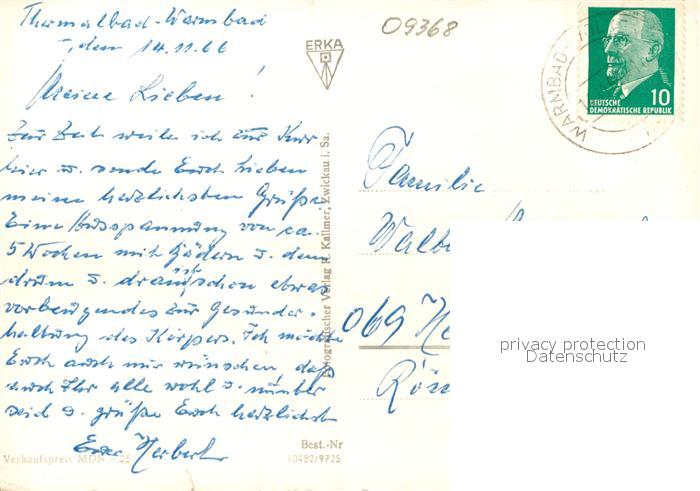 Thermalbad-Warmbad
, den 14.11.66
Meine Lieben!
Zur Zeit weile ich zur Kur
hier u. sende Euch Lieben
meine herzlichsten Grüße.
Eine Ausspannung von ca.
5 Wochen mit Bädern u. dem
drum u. dran ist schon etwas
vorbeugendes zur Gesunder-
haltung des Körpers. Ich möchte
Euch auch nur wünschen, daß
auch Ihr alle wohl u. munter
seid u. grüße Euch herzlichst
Euer Herbert
Verkaufspreis MDN -.25
ERKA
Fotografischer Verlag R. Kallmer, Zwickau i. Sa.
Best.-Nr
10482/9725
09368
WARMBAD
10
DEUTSCHE
DEMOKRATISCHE REPUBLIK
Familie
069
privacy protection
Datenschutz